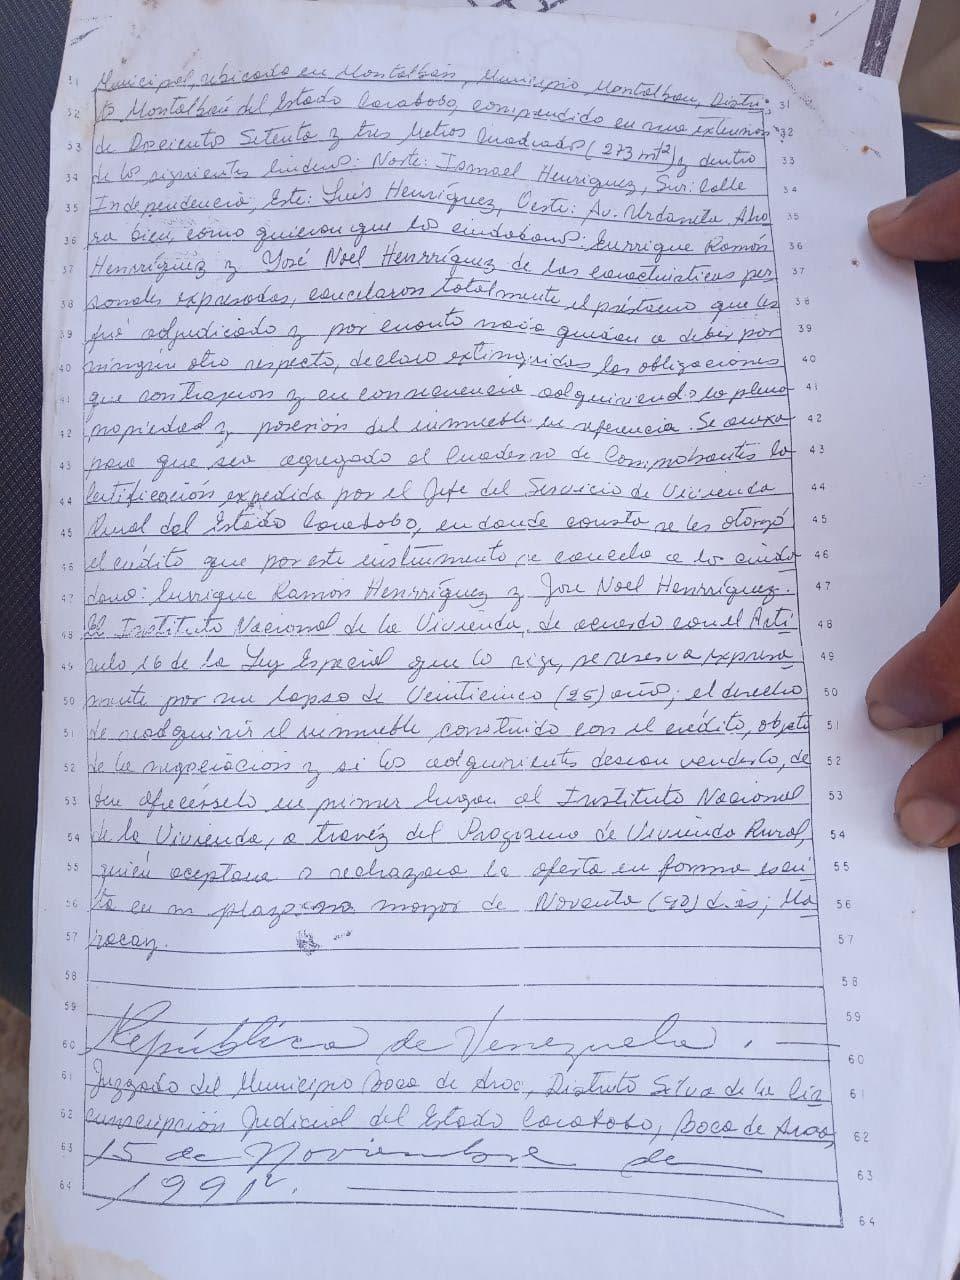 31 Municipal, ubicado en Montalbán, Municipio Montalban, Distri- 31
32 to Montalbán del Estado Carabobo, comprendido en una extensión 32
33 de Doscientos Setenta y tres Metros Cuadrados (273 mt²) y dentro 33
34 de los siguientes linderos: Norte: Ismael Henriquez, Sur: Calle 34
35 Independencia, Este: Luis Henríquez, Oeste: Av. Urdaneta. Aho 35
36 ra bien, como quieran que los ciudadanos: Enrrique Ramón 36
37 Henrríquez y José Noel Henrríquez de las caracteristicas per 37
38 sonales expresadas, cancelaron totalmente el préstamo que les 38
39 fué adjudicado y por cuanto nada quedan a deber por 39
40 ningún otro respecto, declaro extinguidas las obligaciones 40
41 que contraxeron y en consecuencia adquiriendo la plena 41
42 propiedad y posesión del inmueble en referencia. Se anexa 42
43 para que sea agregado al Cuaderno de Comprobantes la 43
44 Certificación expedida por el Jefe del Servicio de Vivienda 44
45 Rural del Estado Carabobo, en donde consta se les otorgó 45
46 el crédito que por este instrumento se cancela a los ciuda 46
47 danos: Enrrique Ramón Henrríquez y Jose Noel Henrríquez. 47
48 El Instituto Nacional de la Vivienda, de acuerdo con el Arti- 48
49 culo 16 de la Ley Especial que lo rige, se reserva expresa 49
50 mente por un lapso de Veinticinco (25) años; el derecho 50
51 de readquirir el inmueble construido con el crédito, objeto 51
52 de la negociación y si los adquirientes desean venderlo, de 52
53 ben ofrecérselo en primer lugar al Instituto Nacional 53
54 de la Vivienda, a travéz del Programa de Vivienda Rural, 54
55 quién aceptara o rechazara la oferta en forma escri 55
56 ta en un plazo no mayor de Noventa (90) días; Ma 56
57 racay. 57
58 58
59 59
60 República de Venezuela. 60
61 Juzgado del Municipio Boca de Aroa, Distrito Silva de la Cir 61
62 cunscripción Judicial del Estado Carabobo, Boca de Aroa, 62
63 15 de Noviembre de 63
64 1991. 64